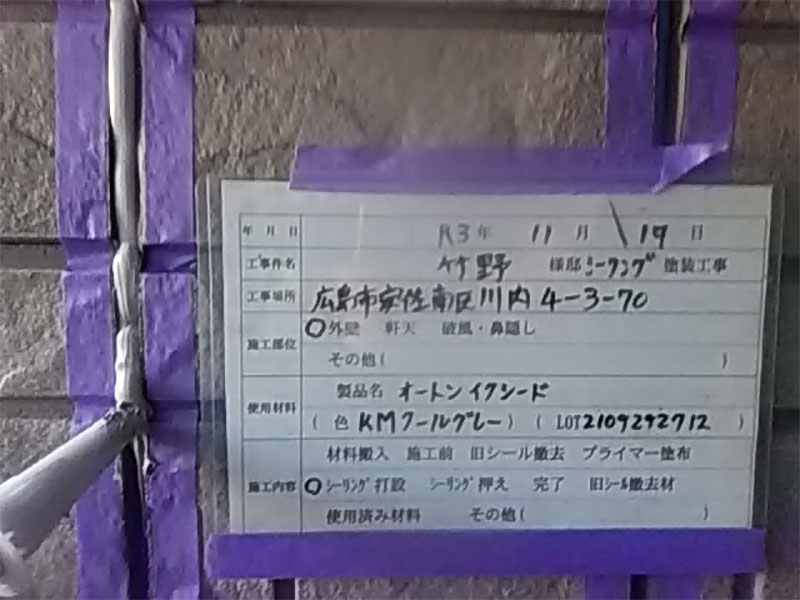 年月日 R3年 11月 19日
工事件名 竹野 様邸 シーリング 塗装工事
工事場所 広島市安佐南区川内 4-3-70
施工部位 〇外壁 軒天 破風・鼻隠し
その他( )
使用材料 製品名 オートンイクシード
( 色 KMクールグレー ) ( LOT2109292712 )
材料搬入 施工前 旧シール撤去 プライマー塗布
施工内容 〇シーリング打設 シーリング押え 完了 旧シール撤去材
使用済み材料 その他( )